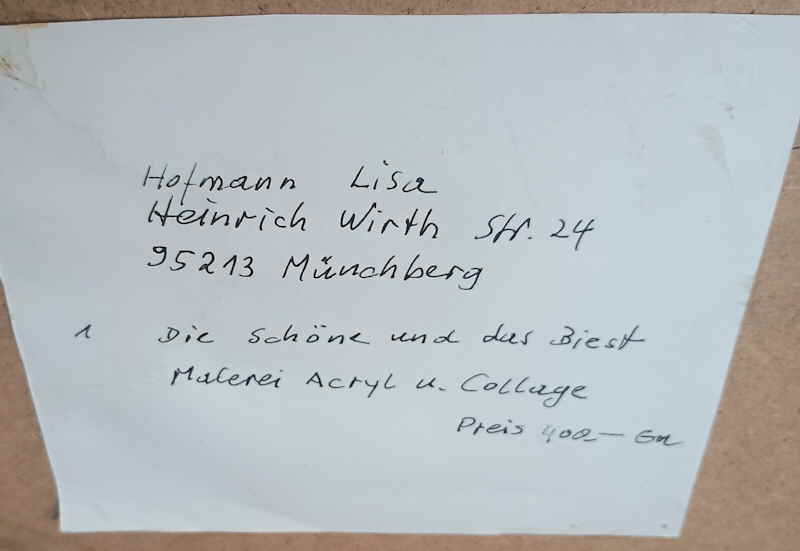 Hofmann Lisa
Heinrich Wirth Str. 24
95213 Münchberg
1 Die Schöne und das Biest
Malerei Acryl u. Collage
Preis 400.—